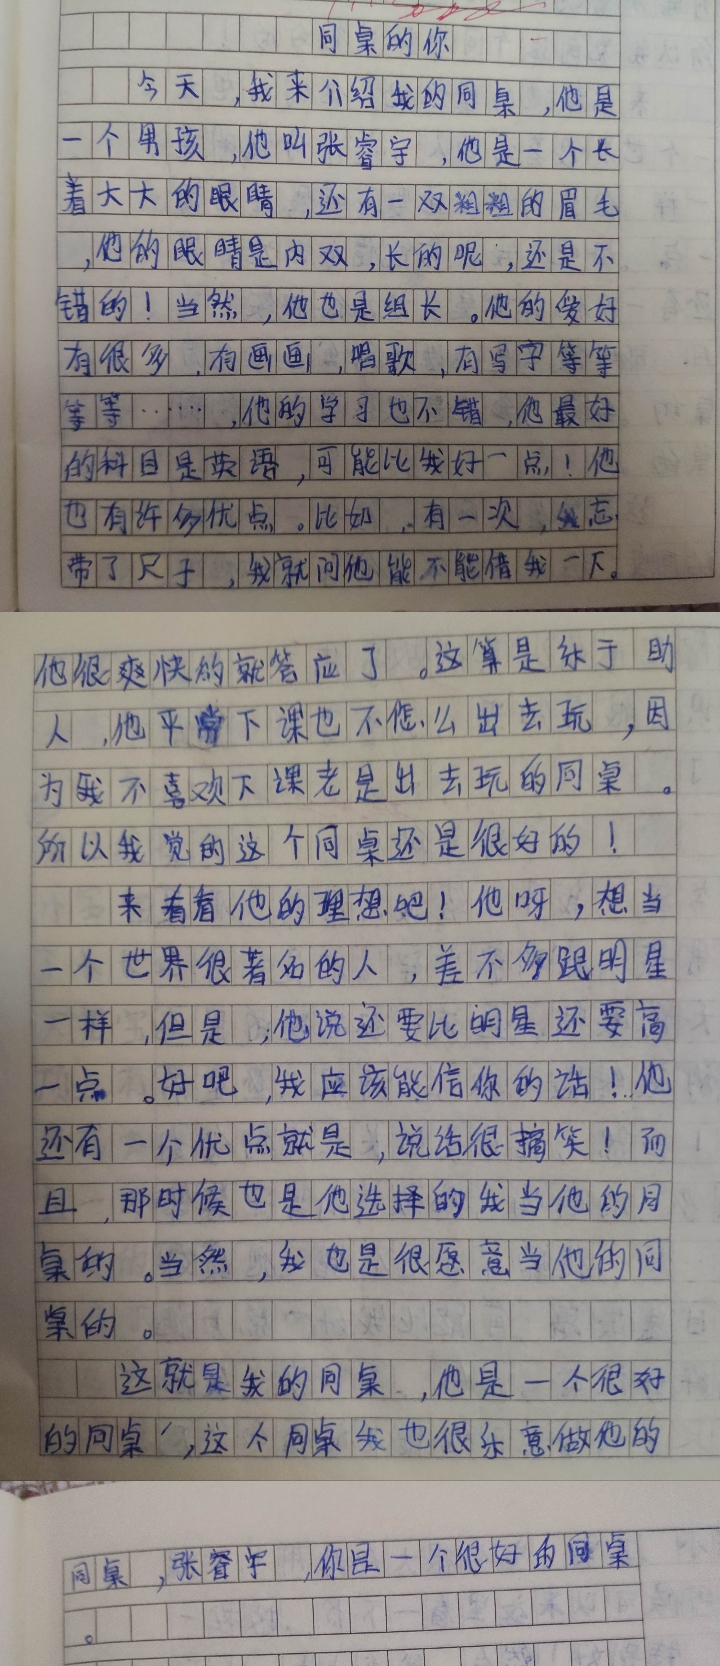 同桌的你
今天,我来介绍我的同桌,他是
一个男孩,他叫张睿宇,他是一个长
着大大的眼睛,还有一双粗粗的眉毛
,他的眼睛是内双,长的呢,还是不
错的!当然,他也是组长。他的爱好
有很多,有画画,唱歌,有写字等等
等等……,他的学习也不错,他最好
的科目是英语,可能比我好一点!他
也有许多优点。比如,有一次,忘
带了尺子,我就问他能不能借我一下。
他很爽快的就答应了。这算是乐于助
人,他平常下课也不怎么出去玩,因
为我不喜欢下课老是出去玩的同桌。
所以我觉的这个同桌还是很好的!
来看看他的理想吧!他呀,想当
一个世界很著名的人,差不多跟明星
一样,但是,他说还要比明星还要高
一点。好吧,我应该能信你的话!他
还有一个优点就是,说话很搞笑!而
且,那时候也是他选择的我当他的同
桌的。当然,我也是很愿意当他的同
桌的。
这就是我的同桌,他是一个很好
的同桌,这个同桌我也很乐意做他的
同桌,张睿宇,你是一个很好的同桌
。